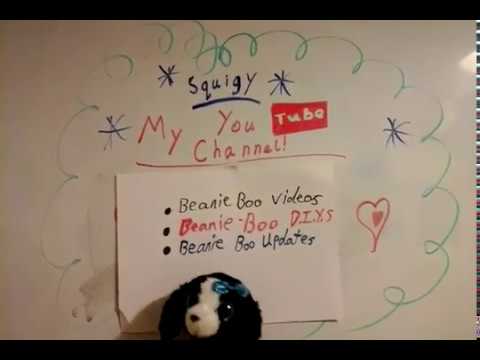 Squigy
My You Tube
Channel!
Beanie Boo Videos
Beanie-Boo D.I.Y.S
Beanie Boo Updates